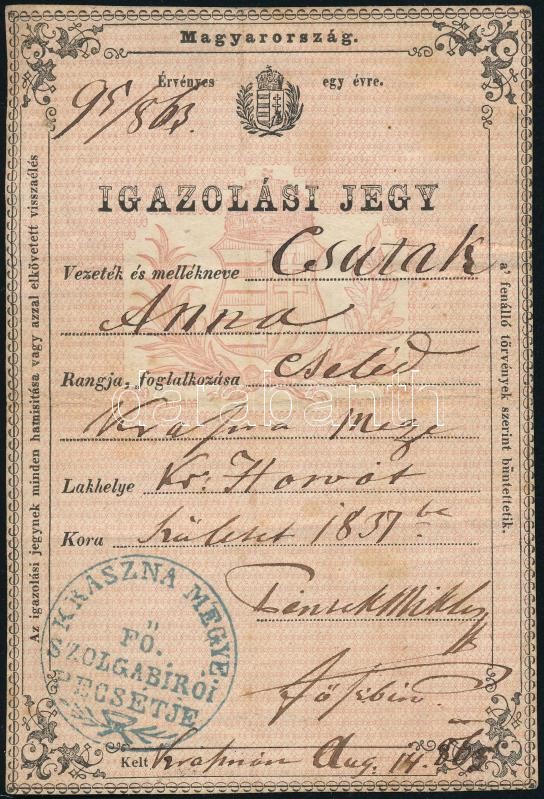 Magyarország.
Érvényes egy évre.
95/863.
IGAZOLÁSI JEGY
Vezeték és mellékneve Csutak
Anna
Rangja, foglalkozása Cseléd
Kraszna Megye
Lakhelye Kr. Horvát
Kora Született 1837be
KRASZNA MEGYE.
FŐ.
SZOLGABÍRÓI
PECSÉTJE
Kelt Krasznán Aug. 14. 863
Az igazolási jegynek minden hamisítása vagy azzal elkövetett visszaélés
a' fenálló törvények szerint büntettetik.
darabanth